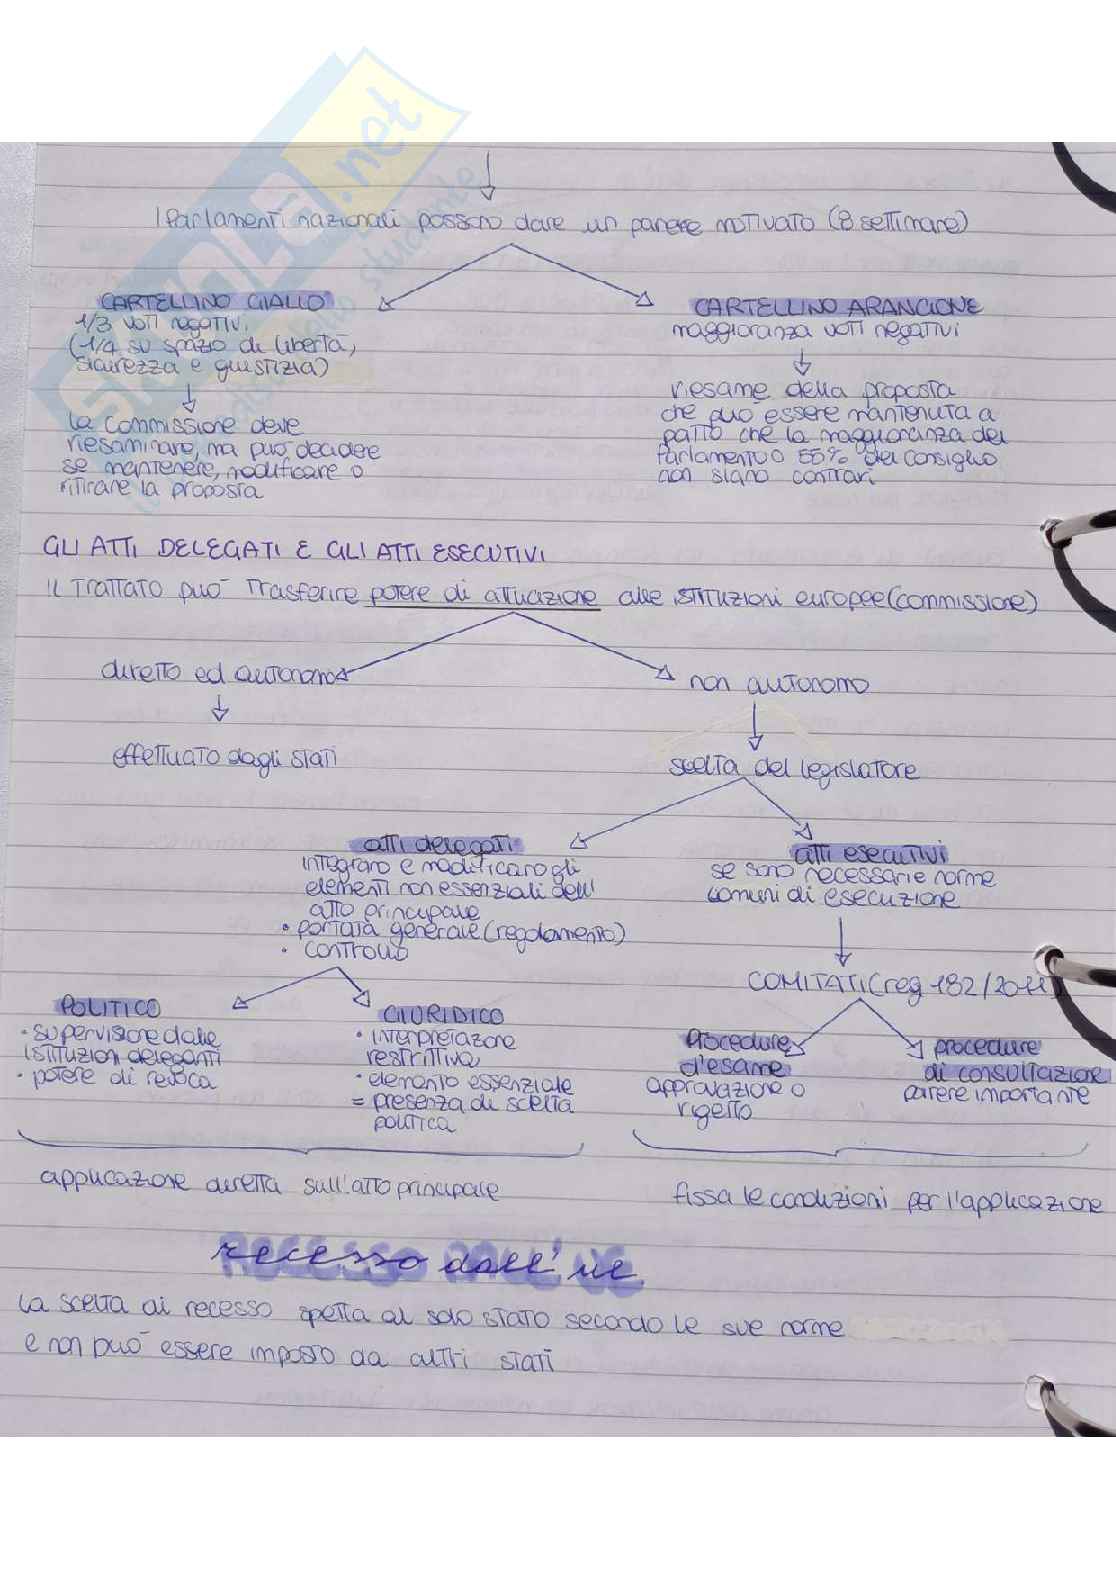 I Parlamenti nazionali possono dare un parere motivato (8 settimane)
CARTELLINO GIALLO
1/3 voti negativi
(1/4 su spazio di libertà,
sicurezza e giustizia)
La Commissione deve
riesaminare, ma può decidere
se mantenere, modificare o
ritirare la proposta
CARTELLINO ARANCIONE
maggioranza voti negativi
riesame della proposta
che può essere mantenuta a
patto che la maggioranza del
Parlamento o 55% del Consiglio
non siano contrari
GLI ATTI DELEGATI E GLI ATTI ESECUTIVI
Il trattato può trasferire potere di attuazione alle istituzioni europee (commissione)
diretto ed autonomo
effettuato dagli stati
non autonomo
scelta del legislatore
atti delegati
integrano e modificano gli
elementi non essenziali dell'
atto principale
• portata generale (regolamento)
• controllo
POLITICO
• supervisione dalle
istituzioni deleganti
• potere di revoca
GIURIDICO
• interpretazione
restrittiva
• elemento essenziale
= presenza di scelta
politica
applicazione diretta sull'atto principale
atti esecutivi
se sono necessarie norme
comuni di esecuzione
COMITATI (reg 182/2011)
Procedure
d'esame
approvazione o
rigetto
procedure
di consultazione
parere importante
fissa le condizioni per l'applicazione
recesso dall'ue
La scelta di recesso spetta al solo stato secondo le sue norme
e non può essere imposto da altri stati
skuola.net